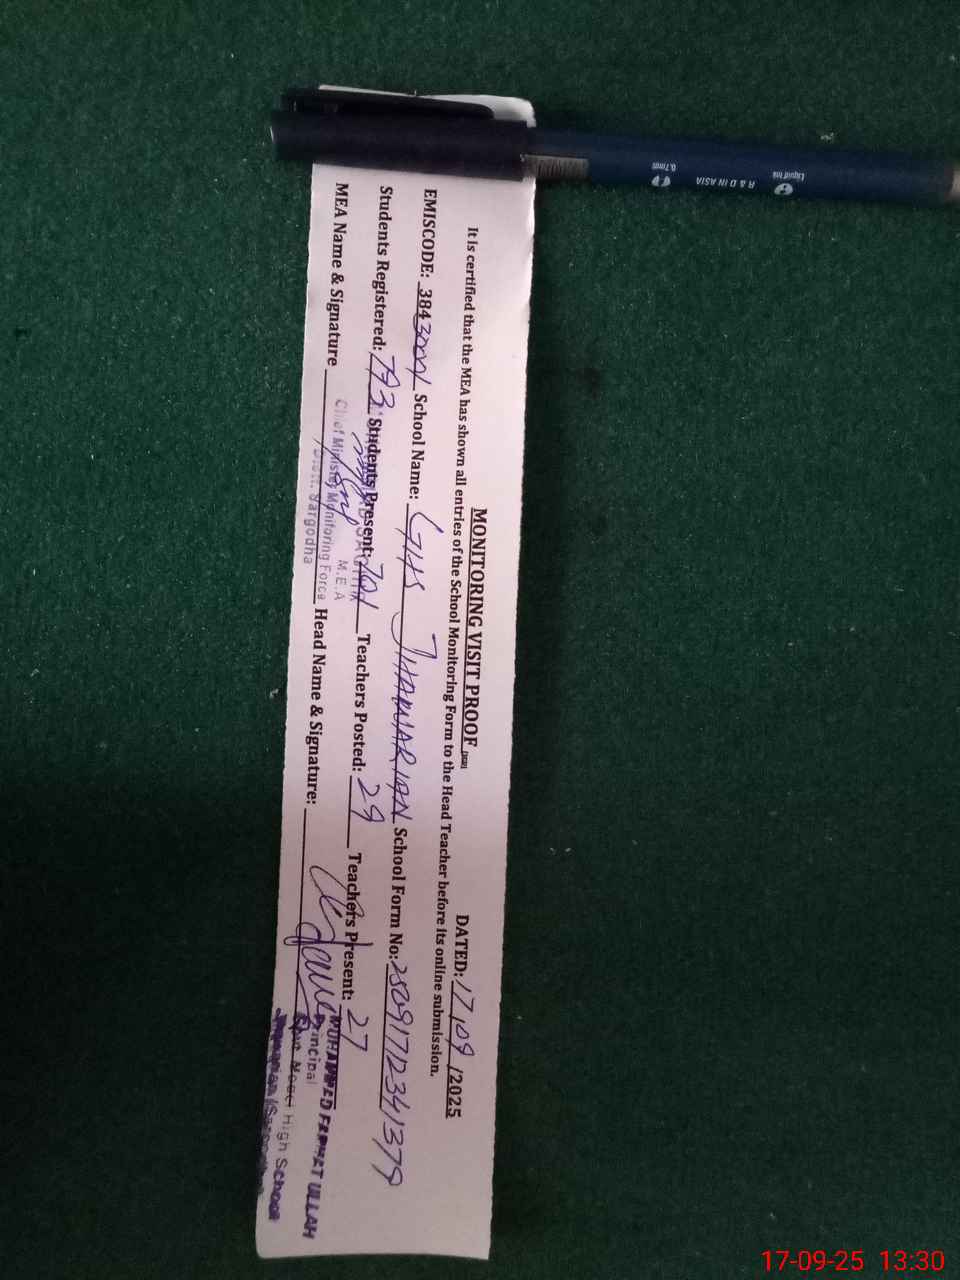 MONITORING VISIT PROOF
DATED: 17/09/2025
It is certified that the MEA has shown all entries of the School Monitoring Form to the Head Teacher before its online submission.
EMISCODE: 384 School Name: GHS JHAWARIAN School Form No:
Students Registered: 793 Students Present: 701 Teachers Posted: 29 Teachers Present: 27
MEA Name & Signature Head Name & Signature:
M.E.A
Chief Minister Monitoring Force
Distt. Sargodha
MUHAMMED FARHAT ULLAH
Principal
High School
Liquid Ink
R & D IN ASIA
0.7mm
17-09-25 13:30